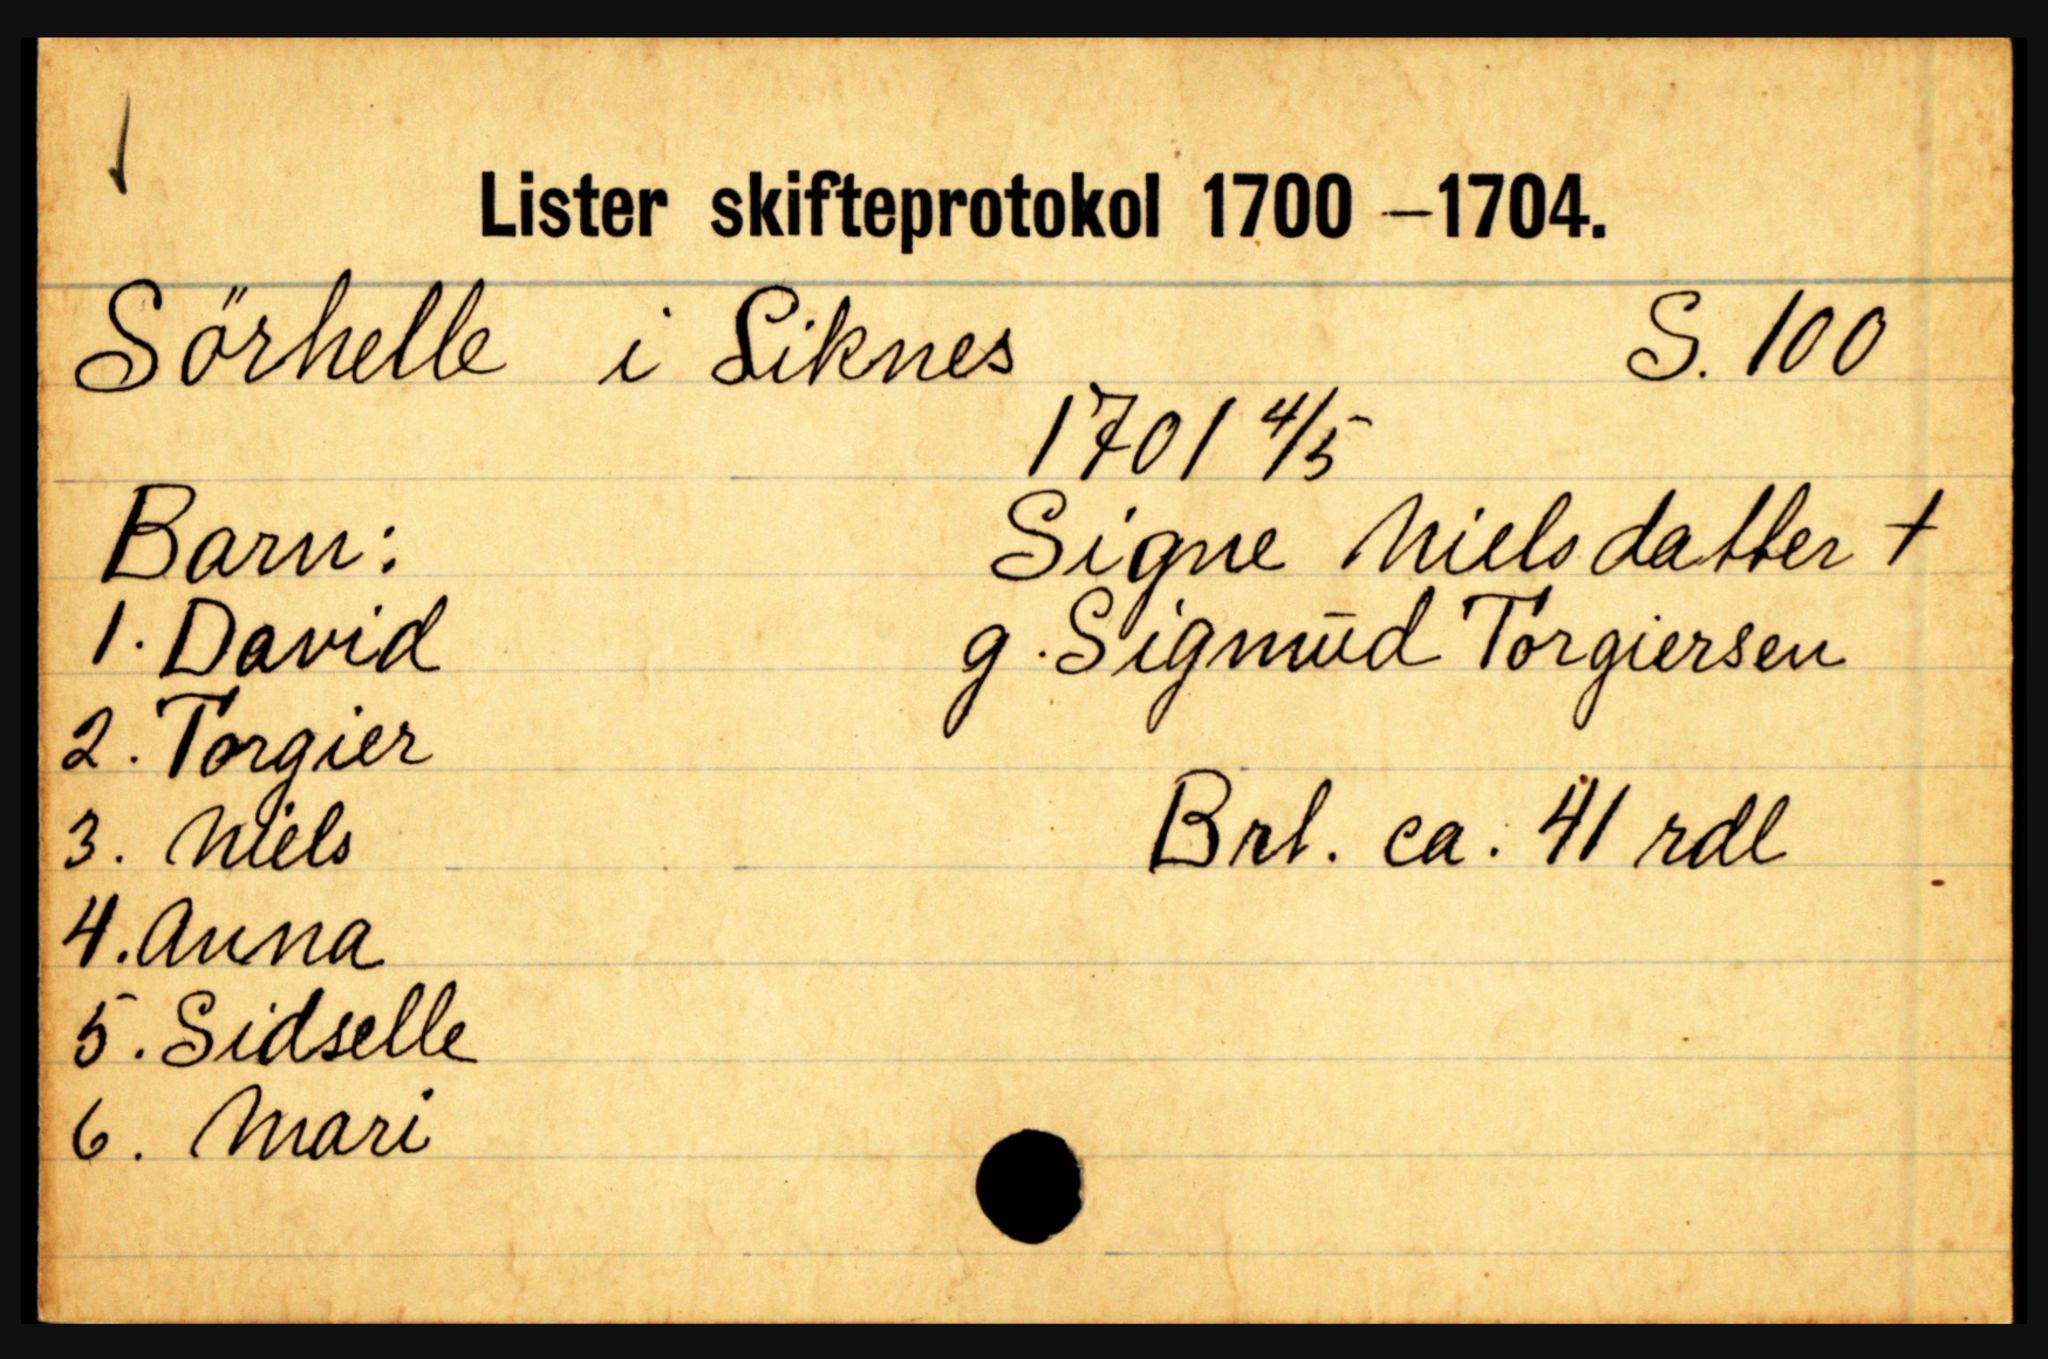 Lister skifteprotokol 1700 –1704.
Sörhelle i Liknes S. 100
1701 4/5
Barn: Signe Nielsdatter †
1. David g. Sigmūd Torgiersen
2. Torgier
3. Niels Brl. ca. 41 rdl
4. Anna
5. Sidselle
6. Mari